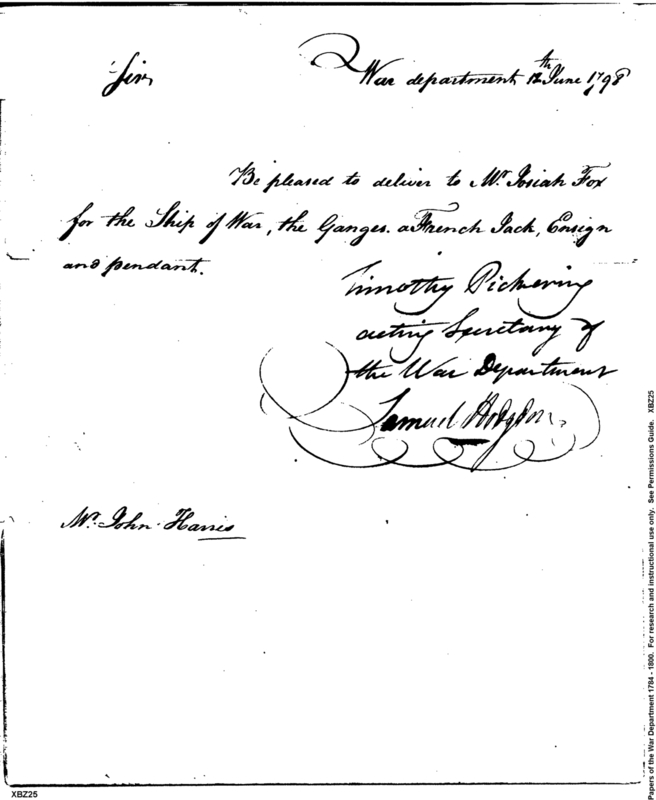 Sir,
War department 12th June 1798
Be pleased to deliver to Mr. Josiah Fox
for the Ship of War, the Ganges. a French Jack, Ensign
and pendant.
Timothy Pickering
acting Secretary of
the War Department
Samuel Hodgdon,
Mr. John Harris
XBZ25
Papers of the War Department 1784 - 1800. For research and instructional use only. See Permissions Guide. XBZ25